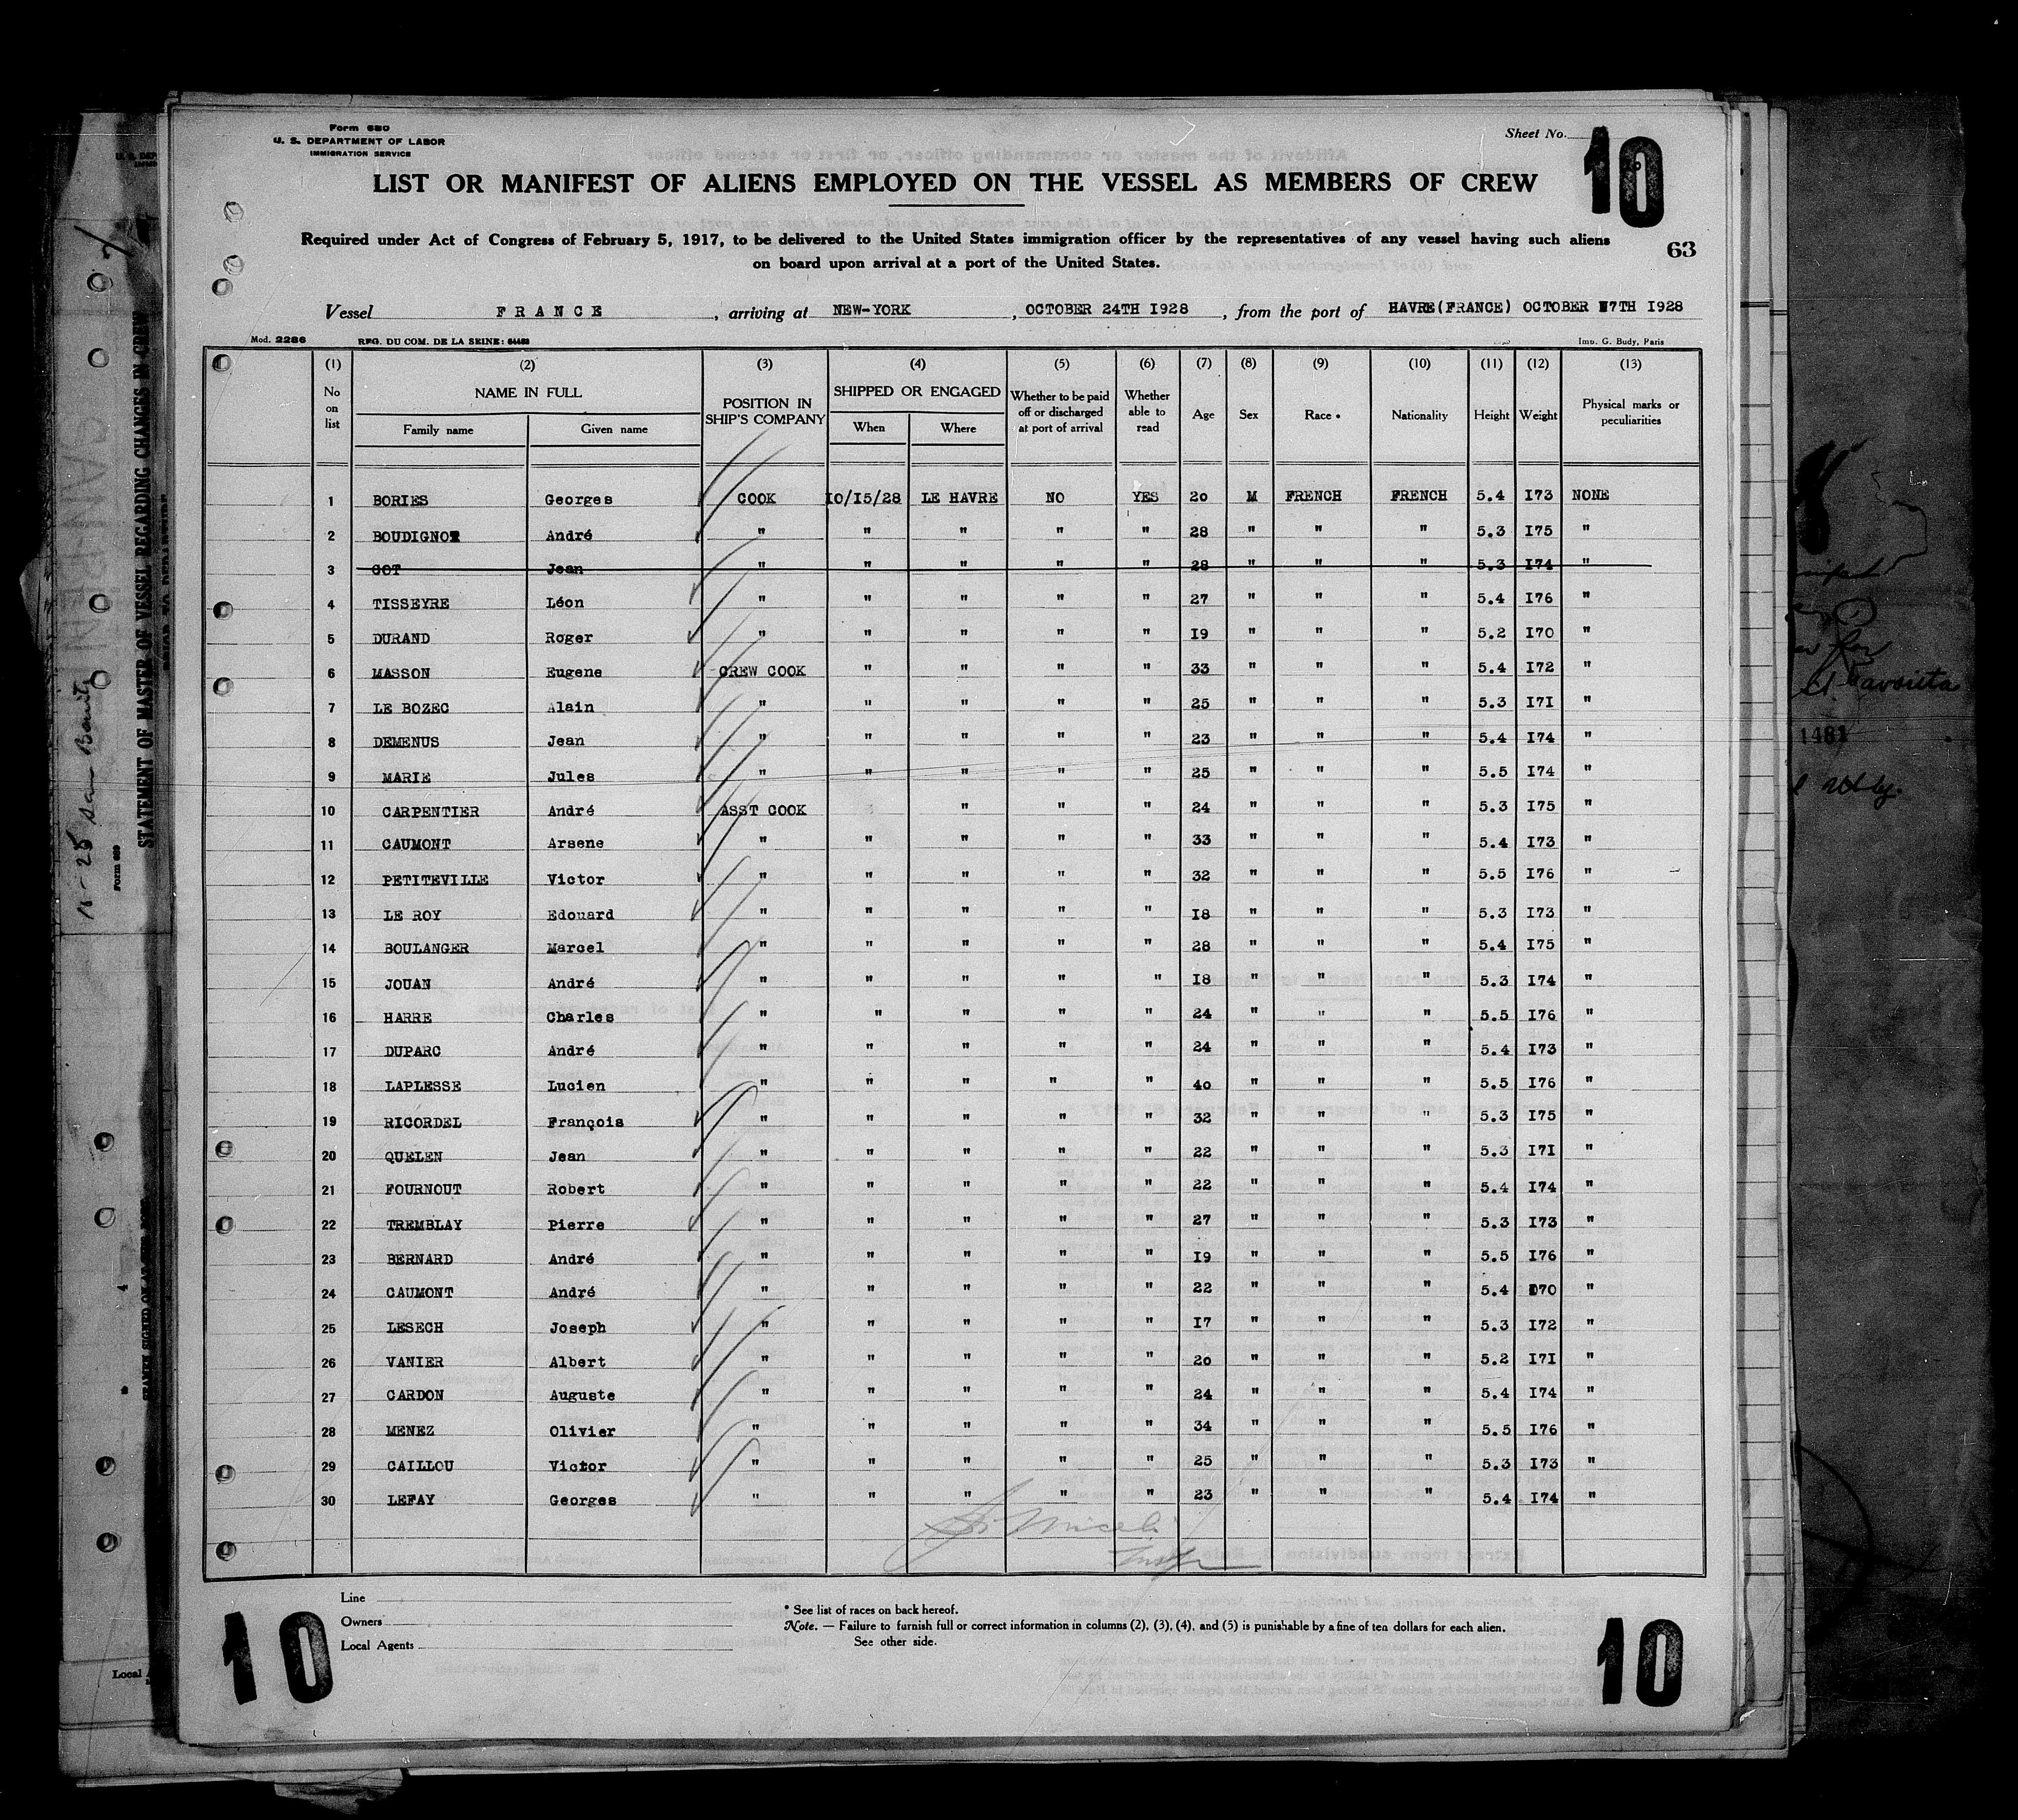 Form 680
U. S. DEPARTMENT OF LABOR
IMMIGRATION SERVICE
Sheet No.
10
LIST OR MANIFEST OF ALIENS EMPLOYED ON THE VESSEL AS MEMBERS OF CREW
Required under Act of Congress of February 5, 1917, to be delivered to the United States immigration officer by the representatives of any vessel having such aliens
on board upon arrival at a port of the United States.
63
Vessel FRANCE, arriving at NEW-YORK, OCTOBER 24TH I928, from the port of HAVRE(FRANCE) OCTOBER 17TH I928
Mod. 2286 REG. DU COM. DE LA SEINE: 64483 Imp. G. Budy, Paris
(1) (2) (3) (4) (5) (6) (7) (8) (9) (10) (11) (12) (13)
No on list NAME IN FULL Family name Given name POSITION IN SHIP'S COMPANY SHIPPED OR ENGAGED When Where Whether to be paid off or discharged at port of arrival Whether able to read Age Sex Race * Nationality Height Weight Physical marks or peculiarities
1 BORIES Georges COOK I0/I5/28 LE HAVRE NO YES 20 M FRENCH FRENCH 5.4 I73 NONE
2 BOUDIGNOT André " " " " " 28 " " " 5.3 I75 "
3 GOT Jean " " " " " 28 " " " 5.3 I74 "
4 TISSEYRE Léon " " " " " 27 " " " 5.4 I76 "
5 DURAND Roger " " " " " I9 " " " 5.2 I70 "
6 MASSON Eugene CREW COOK " " " " 33 " " " 5.4 I72 "
7 LE BOZEC Alain " " " " " 25 " " " 5.3 I7I "
8 DEMENUS Jean " " " " " 23 " " " 5.4 I74 "
9 MARIE Jules " " " " " 25 " " " 5.5 I74 "
10 CARPENTIER André ASST COOK " " " 24 " " " 5.3 I75 "
11 CAUMONT Arsene " " " " " 33 " " " 5.4 I73 "
12 PETITEVILLE Victor " " " " " 32 " " " 5.5 I76 "
13 LE ROY Edouard " " " " " I8 " " " 5.3 I73 "
14 BOULANGER Marcel " " " " " 28 " " " 5.4 I75 "
15 JOUAN André " " " " " I8 " " " 5.3 I74 "
16 HARRE Charles " " " " " 24 " " " 5.5 I76 "
17 DUPARC André " " " " " 24 " " " 5.4 I73 "
18 LAPLESSE Lucien " " " " " 40 " " " 5.5 I76 "
19 RICORDEL François " " " " " 32 " " " 5.3 I75 "
20 QUELEN Jean " " " " " 22 " " " 5.3 I7I "
21 FOURNOUT Robert " " " " " 22 " " " 5.4 I74 "
22 TREMBLAY Pierre " " " " " 27 " " " 5.3 I73 "
23 BERNARD André " " " " " I9 " " " 5.5 I76 "
24 CAUMONT André " " " " " 22 " " " 5.4 I70 "
25 LESECH Joseph " " " " " I7 " " " 5.3 I72 "
26 VANIER Albert " " " " " 20 " " " 5.2 I7I "
27 CARDON Auguste " " " " " 24 " " " 5.4 I74 "
28 MENEZ Olivier " " " " " 34 " " " 5.5 I76 "
29 CAILLOU Victor " " " " " 25 " " " 5.3 I73 "
30 LEFAY Georges " " " " " 23 " " " 5.4 I74 "
Line
Owners
Local Agents
* See list of races on back hereof.
Note. — Failure to furnish full or correct information in columns (2), (3), (4), and (5) is punishable by a fine of ten dollars for each alien.
See other side.
10
10
STATEMENT OF MASTER OF VESSEL REGARDING CHANGES IN CREW
Form 689
Local
1481